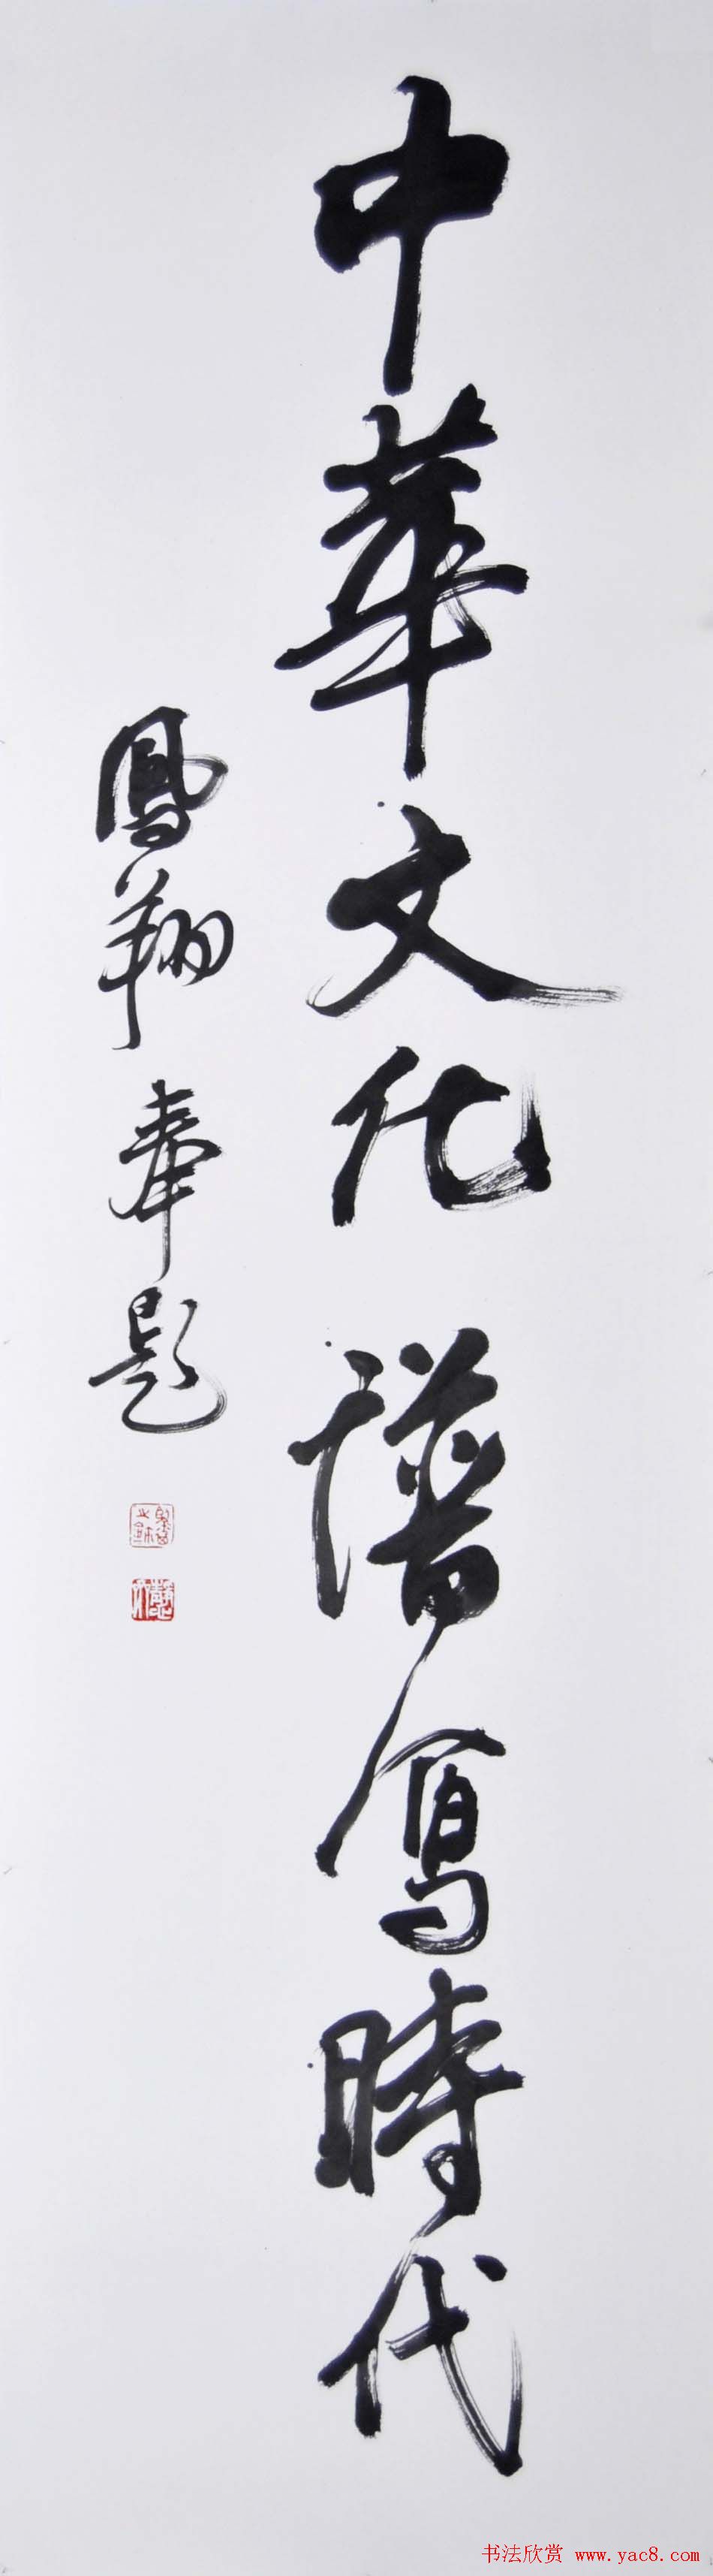 中華文化譜寫時代
鳳翔奉題
书法欣赏 www.yac8.com